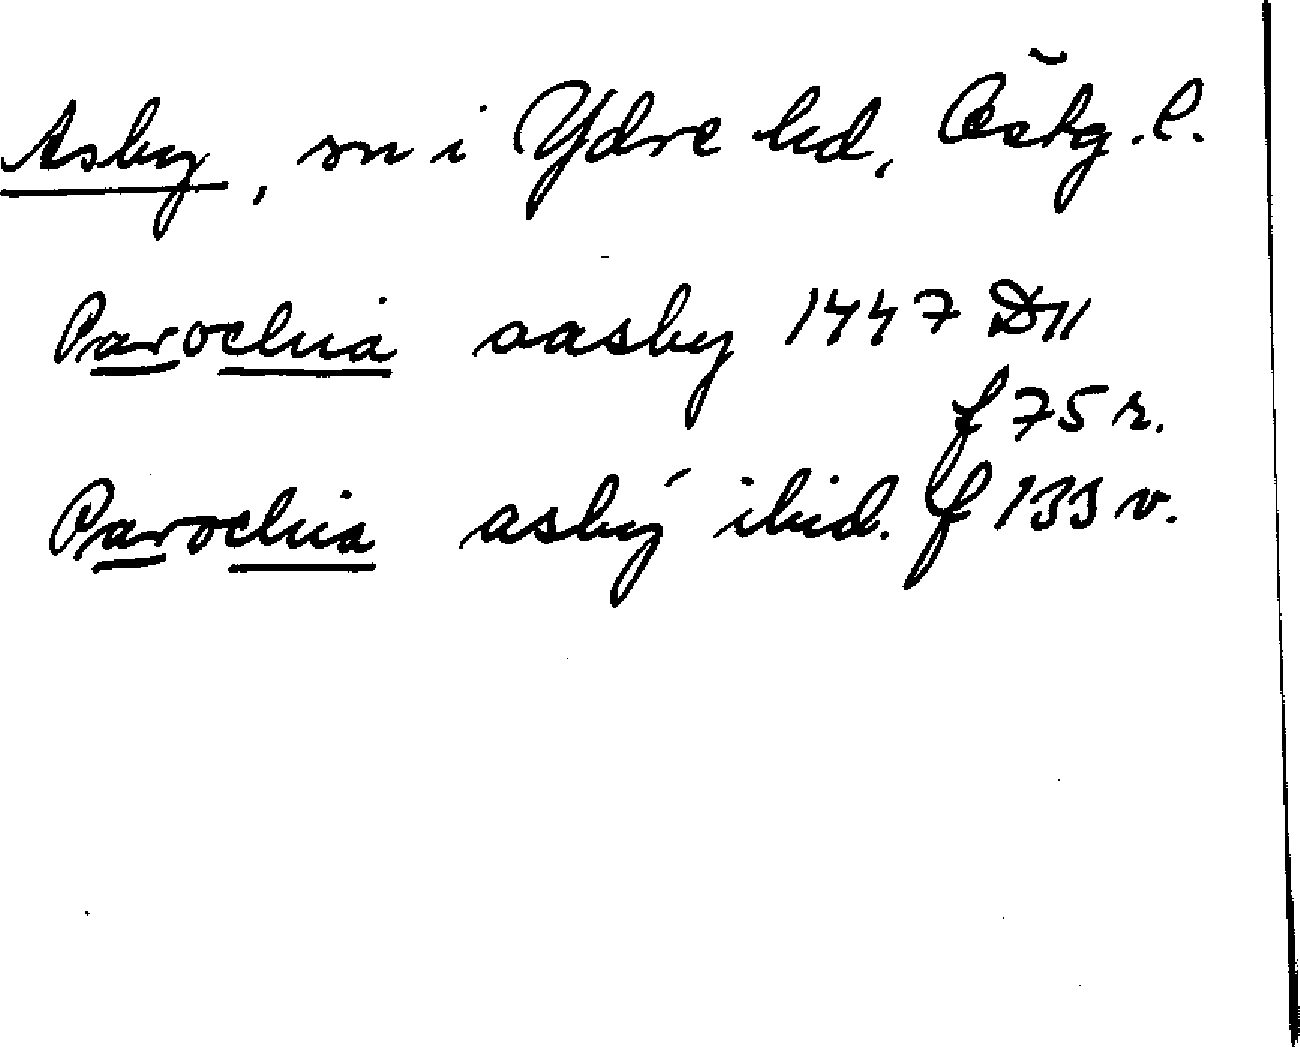 Asby, sn i Ydre hd, Östg. l.
Parochia aasby 1447 D11
f 75 r.
Parochia asbý ibid. f 133 v.